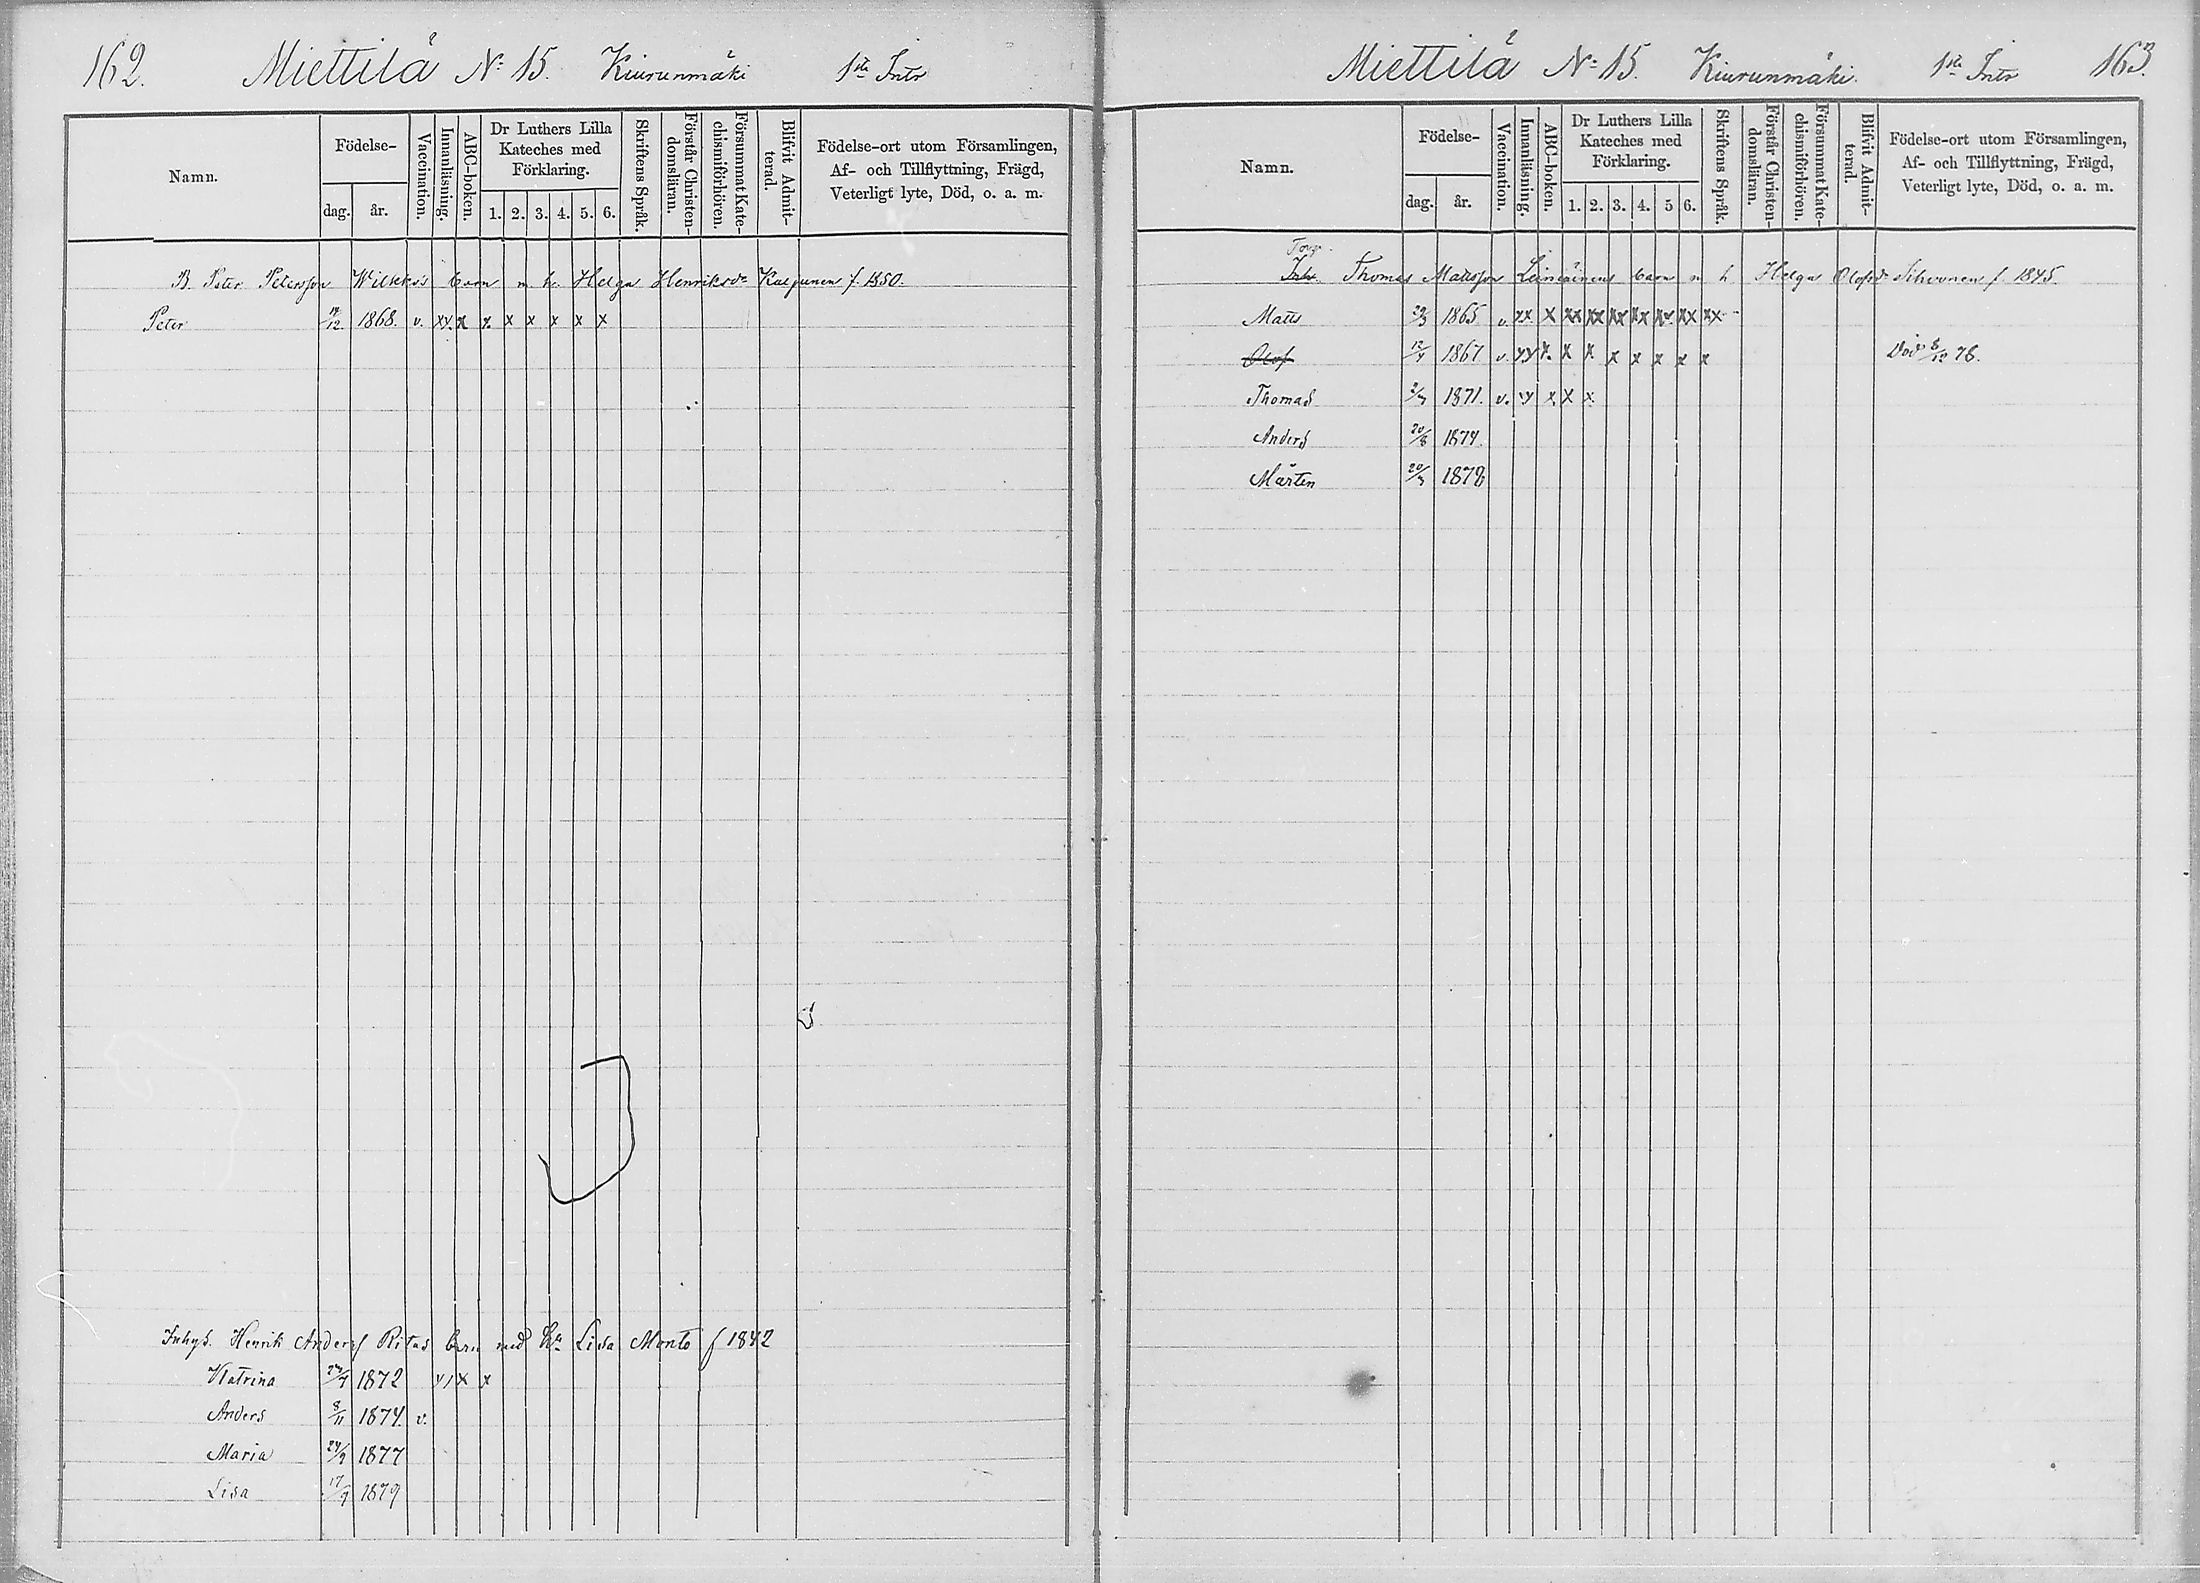 162. Miettilä N:o 15. Kiurunmäki 1sta Intr
Namn. Födelse- dag. år. Vaccination. Innanläsning. ABC-boken. Dr Luthers Lilla Kateches med Förklaring. 1. 2. 3. 4. 5. 6. Skriftens Språk. Förstår Christendomsläran. Försummat Katechismiförhören. Blifvit Admitterad. Födelse-ort utom Församlingen, Af- och Tillflyttning, Frägd, Veterligt lyte, Död, o. a. m.
B. Peter Petersson Wilkko's barn m. h. Helga Henriksdr f. 1850.
Peter /12 1868. v. xx x x x x x x x
Inhys. Henrik Anders Ritas barn med h. Lisa Monto f 1842
Katrina 1872 x x
Anders 8/11 1874. v.
Maria 24/9 1877
Lisa 17/9 1879
Miettilä N:o 15. Kiurunmäki. 1sta Intr 163.
Namn. Födelse- dag. år. Vaccination. Innanläsning. ABC-boken. Dr Luthers Lilla Kateches med Förklaring. 1. 2. 3. 4. 5 6. Skriftens Språk. Förstår Christendomsläran. Försummat Katechismiförhören. Blifvit Admitterad. Födelse-ort utom Församlingen, Af- och Tillflyttning, Frägd, Veterligt lyte, Död, o. a. m.
Torp.
Inh. Thomas Mattsson Leinäinens barn m h Helga Olofsdr Sihvonen f. 1845.
Matts 29/3 1865 v. xx x xx xx xx xx xx xx xx
Olof 12/4 1867 v. xx x x x x x x x x Död 8/12 76.
Thomas 1871. v. x x x
Anders 20/8 1874.
Mårten 20/3 1878